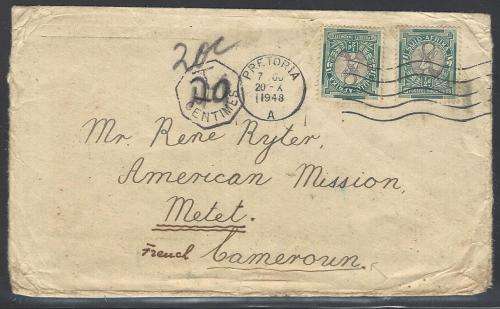 20c
T
20
CENTIMES
PRETORIA
7
20-X
1948
A
Mr. Rene Ryter,
American Mission,
Metet.
French Cameroun.